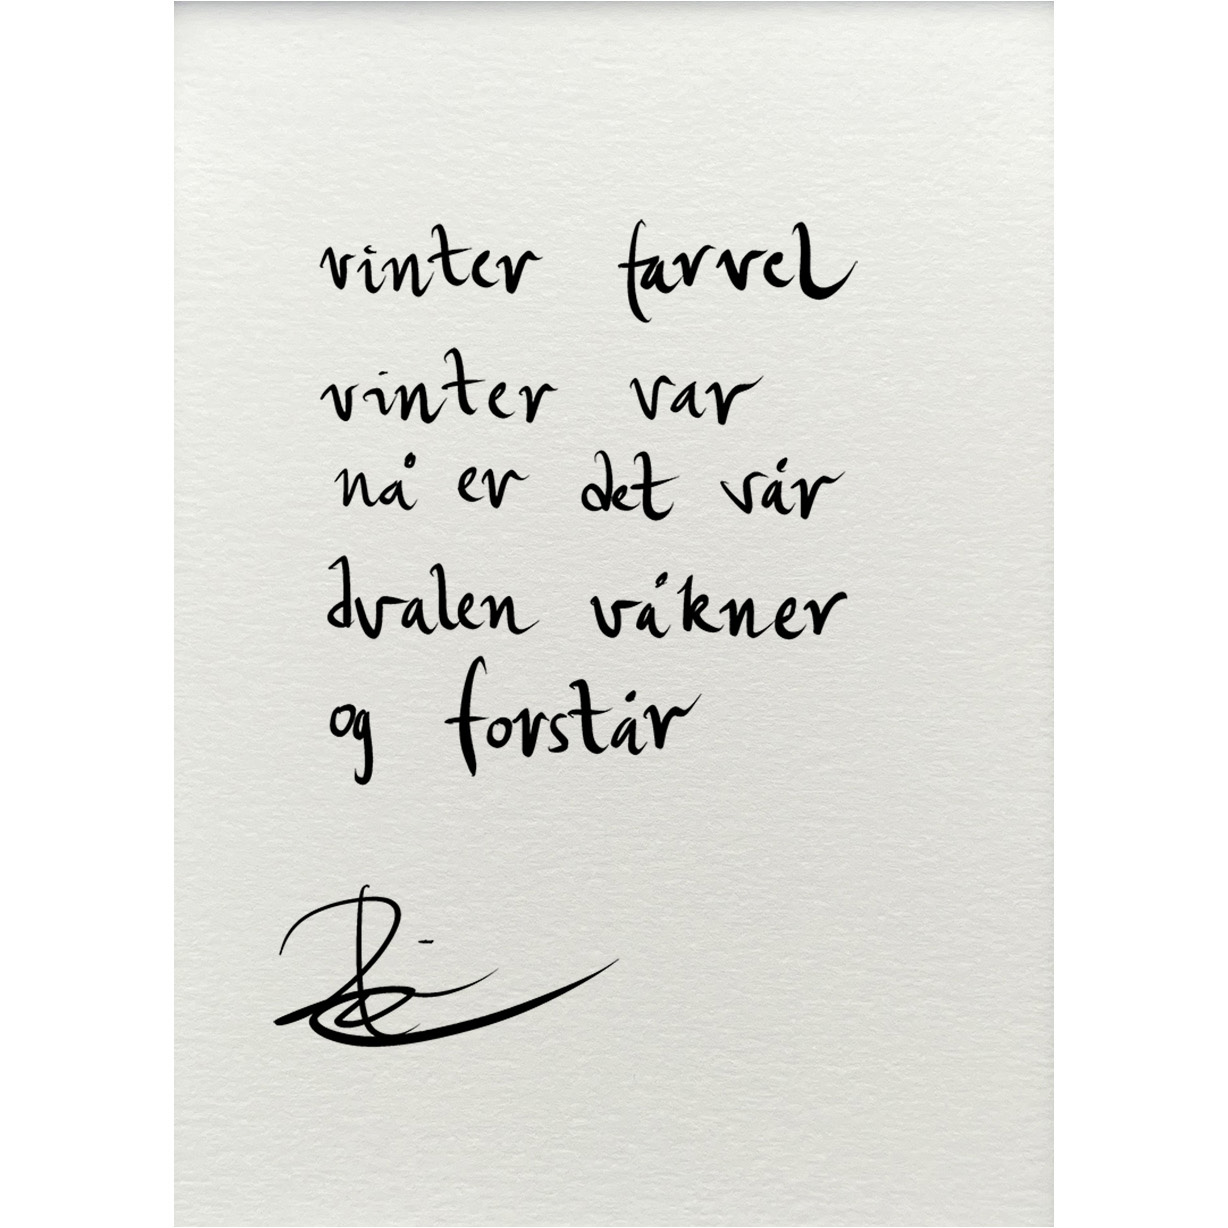 vinter farvel
vinter var
nå er det vår
dvalen våkner
og forstår